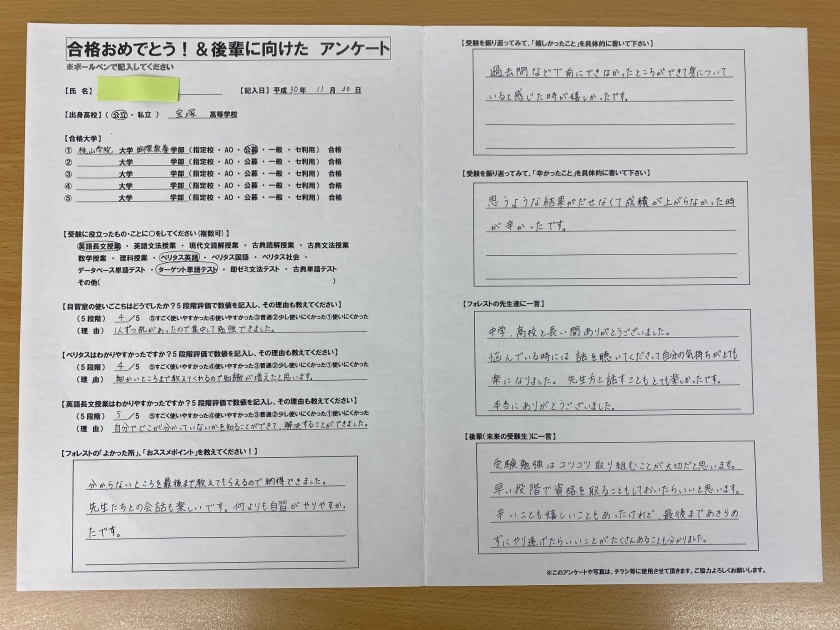 合格おめでとう！＆後輩に向けた アンケート
※ボールペンで記入してください
【氏 名】
【記入日】平成30年 11月 30日
【出身高校】（公立・私立） 宝塚 高等学校
【合格大学】
① 桃山学院 大学 国際教養 学部（指定校・AO・公募・一般・セ利用）合格
② 大学 学部（指定校・AO・公募・一般・セ利用）合格
③ 大学 学部（指定校・AO・公募・一般・セ利用）合格
④ 大学 学部（指定校・AO・公募・一般・セ利用）合格
⑤ 大学 学部（指定校・AO・公募・一般・セ利用）合格
【受験に役立ったもの・ことに○をしてください（複数可）】
英語長文授業 ・ 英語文法授業 ・ 現代文読解授業 ・ 古典読解授業 ・ 古典文法授業
数学授業 ・ 理科授業 ・ ベリタス英語 ・ ベリタス国語 ・ ベリタス社会 ・
データベース単語テスト ・ ターゲット単語テスト ・ 即ゼミ文法テスト ・ 古典単語テスト
その他（ ）
【自習室の使いごこちはどうでしたか？5段階評価で数値を記入し、その理由も教えてください】
（5段階） 4 /5 ⑤すごく使いやすかった④使いやすかった③普通②少し使いにくかった①使いにくかった
（理 由） 1人ずつ机があったので集中して勉強できました。
【ベリタスはわかりやすかったですか？5段階評価で数値を記入し、その理由も教えてください】
（5段階） 4 /5 ⑤すごく使いやすかった④使いやすかった③普通②少し使いにくかった①使いにくかった
（理 由） 細かいところまで教えてくれるので知識が増えたと思います。
【英語長文授業はわかりやすかったですか？5段階評価で数値を記入し、その理由も教えてください】
（5段階） 5 /5 ⑤すごく使いやすかった④使いやすかった③普通②少し使いにくかった①使いにくかった
（理 由） 自分でどこが分かっていないかを知ることができて、解決することができました。
【フォレストの「よかった所」、「おススメポイント」を教えてください！】
分からないところを最後まで教えてもらえるので納得できました。
先生たちとの会話も楽しいです。何よりも自習がやりやすかっ
たです。
【受験を振り返ってみて、「嬉しかったこと」を具体的に書いて下さい】
過去問などで前にできなかったところができて身について
いると感じた時が嬉しかったです。
【受験を振り返ってみて、「辛かったこと」を具体的に書いて下さい】
思うような結果がだせなくて成績が上がらなかった時
が辛かったです。
【フォレストの先生達に一言】
中学、高校と長い間ありがとうございました。
悩んでいる時には話を聴いてくださって自分の気持ちがとても
楽になりました。先生方と話すこともとても楽しかったです。
本当にありがとうございました。
【後輩（未来の受験生）に一言】
受験勉強はコツコツ取り組むことが大切だと思います。
早い段階で資格を取ることもしておいたらいいと思います。
辛いことも嬉しいこともあったけれど、最後まであきらめ
ずにやり遂げたらいいことがたくさんあることも分かりました。
※このアンケートや写真は、チラシ等に使用させて頂きます。ご協力よろしくお願いします。